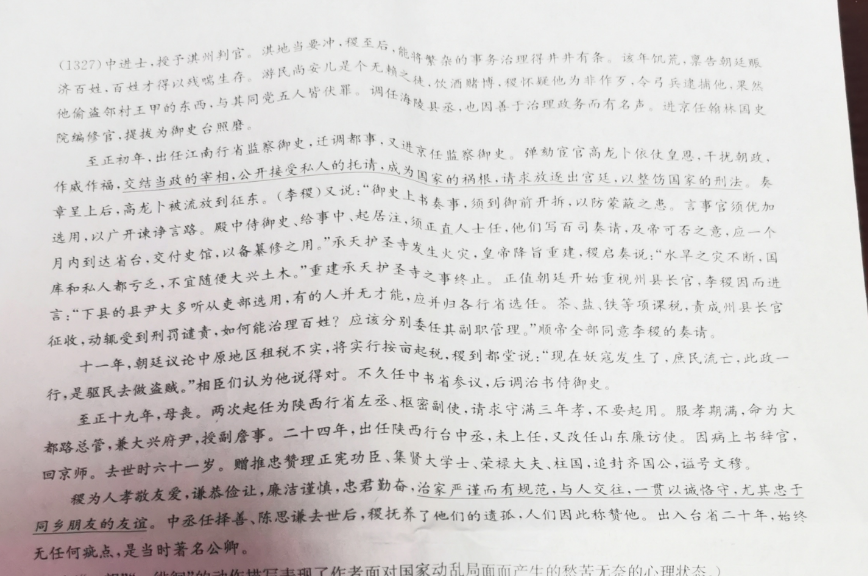 (1327)中进士,授予淇州判官。淇地当要冲,稷至后,能将繁杂的事务治理得井井有条。该年饥荒,禀告朝廷赈
济百姓,百姓才得以残喘生存。游民尚安儿是个无赖之徒,饮酒赌博,稷怀疑他为非作歹,令弓兵逮捕他,果然
他偷盗邻村王甲的东西,与其同党五人皆伏罪。调任海陵县丞,也因善于治理政务而有名声。进京任翰林国史
院编修官,提拔为御史台照磨。
至正初年,出任江南行省监察御史,迁调都事,又进京任监察御史。弹劾宦官高龙卜依仗皇恩,干扰朝政,
作威作福,交结当政的宰相,公开接受私人的托请,成为国家的祸根,请求放逐出宫廷,以整饬国家的刑法。奏
章呈上后,高龙卜被流放到征东。(李稷)又说:“御史上书奏事,须到御前开拆,以防蒙蔽之患。言事官须优加
选用,以广开谏诤言路。殿中侍御史、给事中、起居注,须正直人士任,他们写百司奏请,及帝可否之意,应一个
月内到达省台,交付史馆,以备纂修之用。”承天护圣寺发生火灾,皇帝降旨重建,稷启奏说:“水旱之灾不断,国
库和私人都亏乏,不宜随便大兴土木。”重建承天护圣寺之事终止。正值朝廷开始重视州县长官,李稷因而进
言:“下县的县尹大多听从吏部选用,有的人并无才能,应并归各行省选任。茶、盐、铁等项课税,责成州县长官
征收,动辄受到刑罚谴责,如何能治理百姓?应该分别委任其副职管理。”顺帝全部同意李稷的奏请。
十一年,朝廷议论中原地区租税不实,将实行按亩起税,稷到都堂说:“现在妖寇发生了,庶民流亡,此政一
行,是驱民去做盗贼。”相臣们认为他说得对。不久任中书省参议,后调治书侍御史。
至正十九年,母丧。两次起任为陕西行省左丞、枢密副使,请求守满三年孝,不要起用。服孝期满,命为大
都路总管,兼大兴府尹,授副詹事。二十四年,出任陕西行台中丞,未上任,又改任山东廉访使。因病上书辞官,
回京师。去世时六十一岁。赠推忠赞理正宪功臣、集贤大学士、荣禄大夫、柱国,追封齐国公,谥号文穆。
稷为人孝敬友爱,谦恭俭让,廉洁谨慎,忠君勤奋,治家严谨而有规范,与人交往,一贯以诚恪守,尤其忠于
同乡朋友的友谊。中丞任择善、陈思谦去世后,稷抚养了他们的遗孤,人们因此称赞他。出入台省二十年,始终
无任何疵点,是当时著名公卿。
的动作描写表现了作者面对国家动乱局面而产生的愁苦无奈的心理状态。)